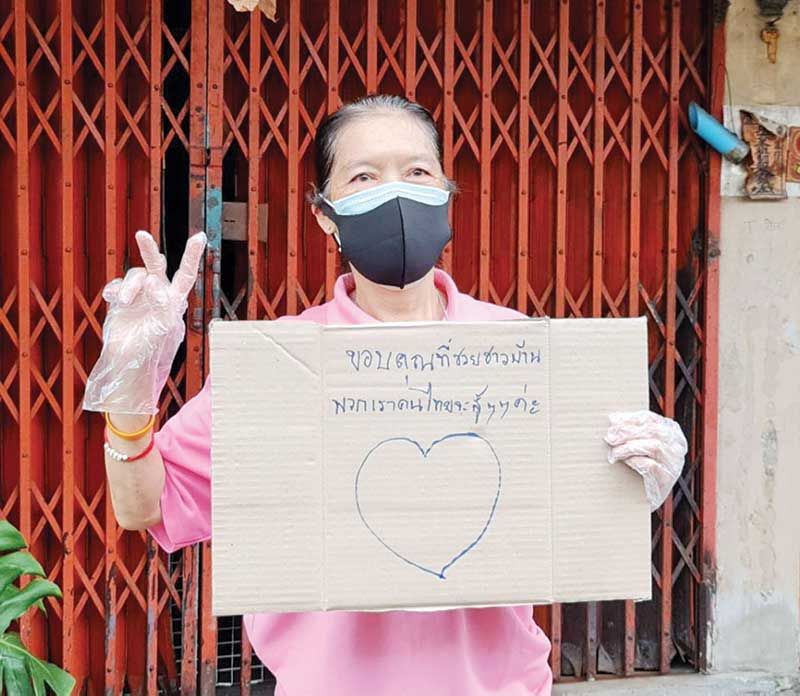 ขอบคุณที่ช่วยชาวบ้าน
พวกเราคนไทยจะสู้ๆๆค่ะ